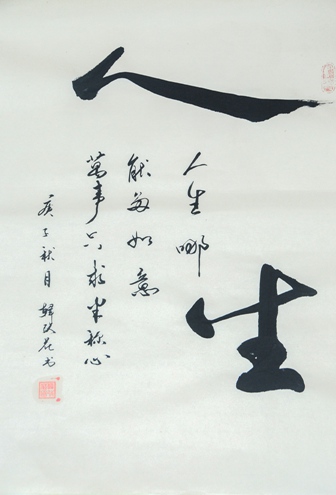 人生
人生哪
能多如意
萬事只求半称心
庚子秋月 韓